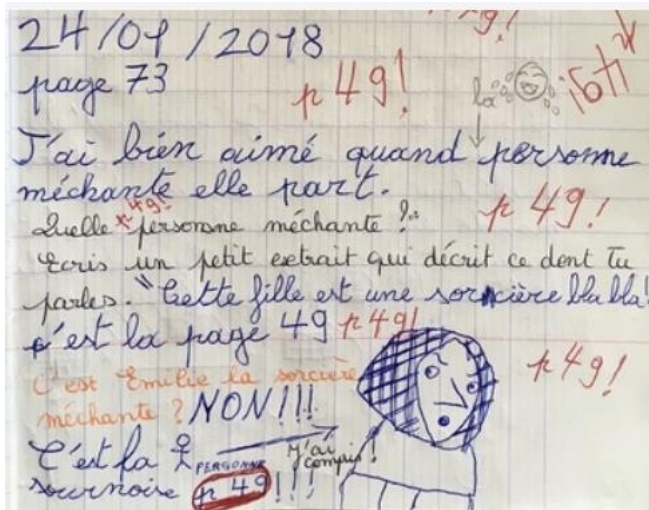 24/01/2018
page 73
p 49!
p 49!
la
J'ai bien aimé quand personne
méchante elle part.
p 49!
Quelle personne méchante ?
p 49!
Ecris un petit extrait qui décrit ce dont Tu
parles. "Cette fille est une sorcière bla bla!
c'est la page 49 p 49!
p 49!
C'est Emilie la sorcière
méchante ? NON!!!
C'est la PERSONNE
J'ai compris !
sournoise p 49!!!